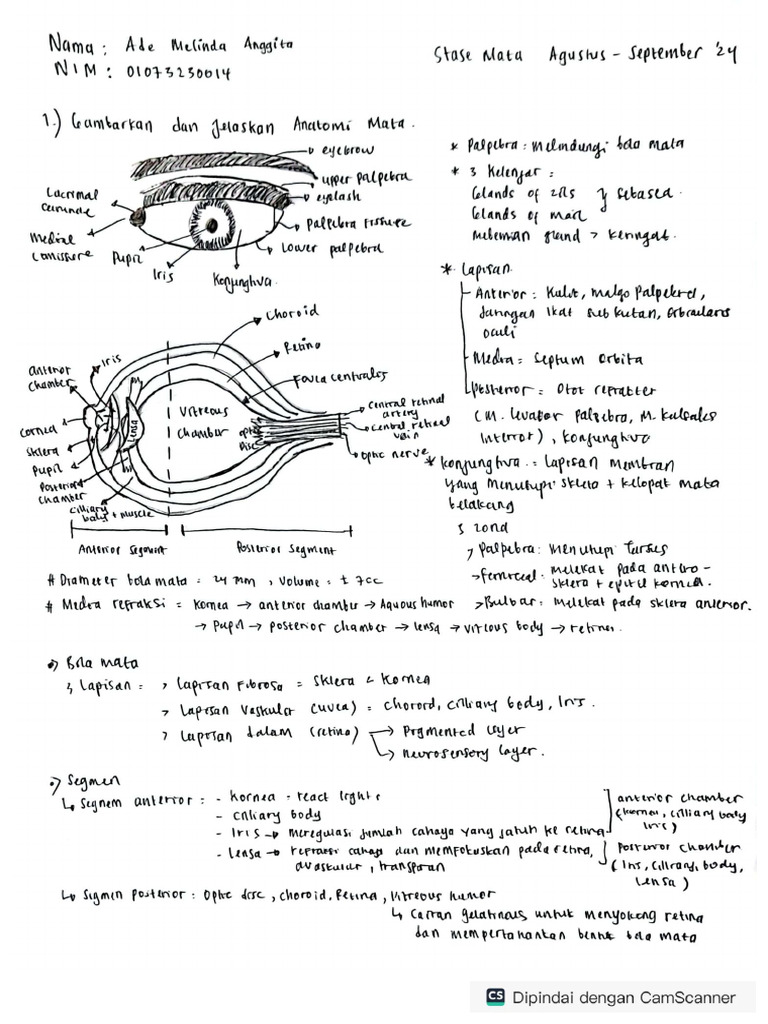 Nama : Ade Melinda Anggita
NIM : 01073230014
Stase Mata Agustus - September '24
1.) Gambarkan dan Jelaskan Anatomi Mata.
eyebrow
upper palpebra
eyelash
Lacrimal caruncle
palpebra fissure
Medial comissure
Lower palpebra
Pupil
Iris
Konjungtiva
* Palpebra : Melindungi bola mata
* 3 Kelenjar :
Glands of zeis } sebasea.
Glands of moll
meibomian gland > keringat.
* Lapisan
Anterior : Kulit, margo palpebral,
Jaringan Ikat subkutan, Orbicularis
oculi
Media : Septum Orbita
Posterior : Otot refrakter
(M. levator palpebra, M.
), konjungtiva
* Konjungtiva : Lapisan membran
yang menutupi sklera + kelopak mata
belakang
3 zona
> Palpebra : Menutupi Tarsus
> : melekat pada
sklera + epitel kornea.
> Bulbar : Melekat pada sklera anterior.
choroid
Retina
Fovea centrales
anterior chamber
Iris
cornea
sklera
Pupil
Posterior chamber
cilliary body + muscle
Lensa
Vitreous chamber
optic disc
central retinal artery
central retinal vein
optic nerve
Anterior segment
Posterior segment
# Diameter bola mata : 24 mm , Volume : ± 7cc
# Media refraksi = Kornea → anterior chamber → Aquous humor
→ Pupil → posterior chamber → lensa → vitreous body → retina.
•) Bola mata
3 Lapisan : > Lapisan Fibrosa = Sklera & Kornea
> Lapisan Vaskular (uvea) = choroid, cilliary body, Iris.
> Lapisan dalam (retina) → Pigmented layer
→ neurosensory layer.
•) Segmen
↳ Segmen anterior : - Kornea
- ciliary body
- Iris → meregulasi jumlah cahaya yang jatuh ke retina
- Lensa → refraksi cahaya dan memfokuskan pada retina,
avaskular, transparan
anterior chamber
(kornea, cilliary body
Iris)
Posterior chamber
(Iris, cilliary, body,
Lensa)
↳ Segmen posterior : Optic disc, choroid, Retina, Vitreous humor
↳ Cairan gelatinous untuk menyokong retina
dan mempertahankan bentuk bola mata
CS Dipindai dengan CamScanner